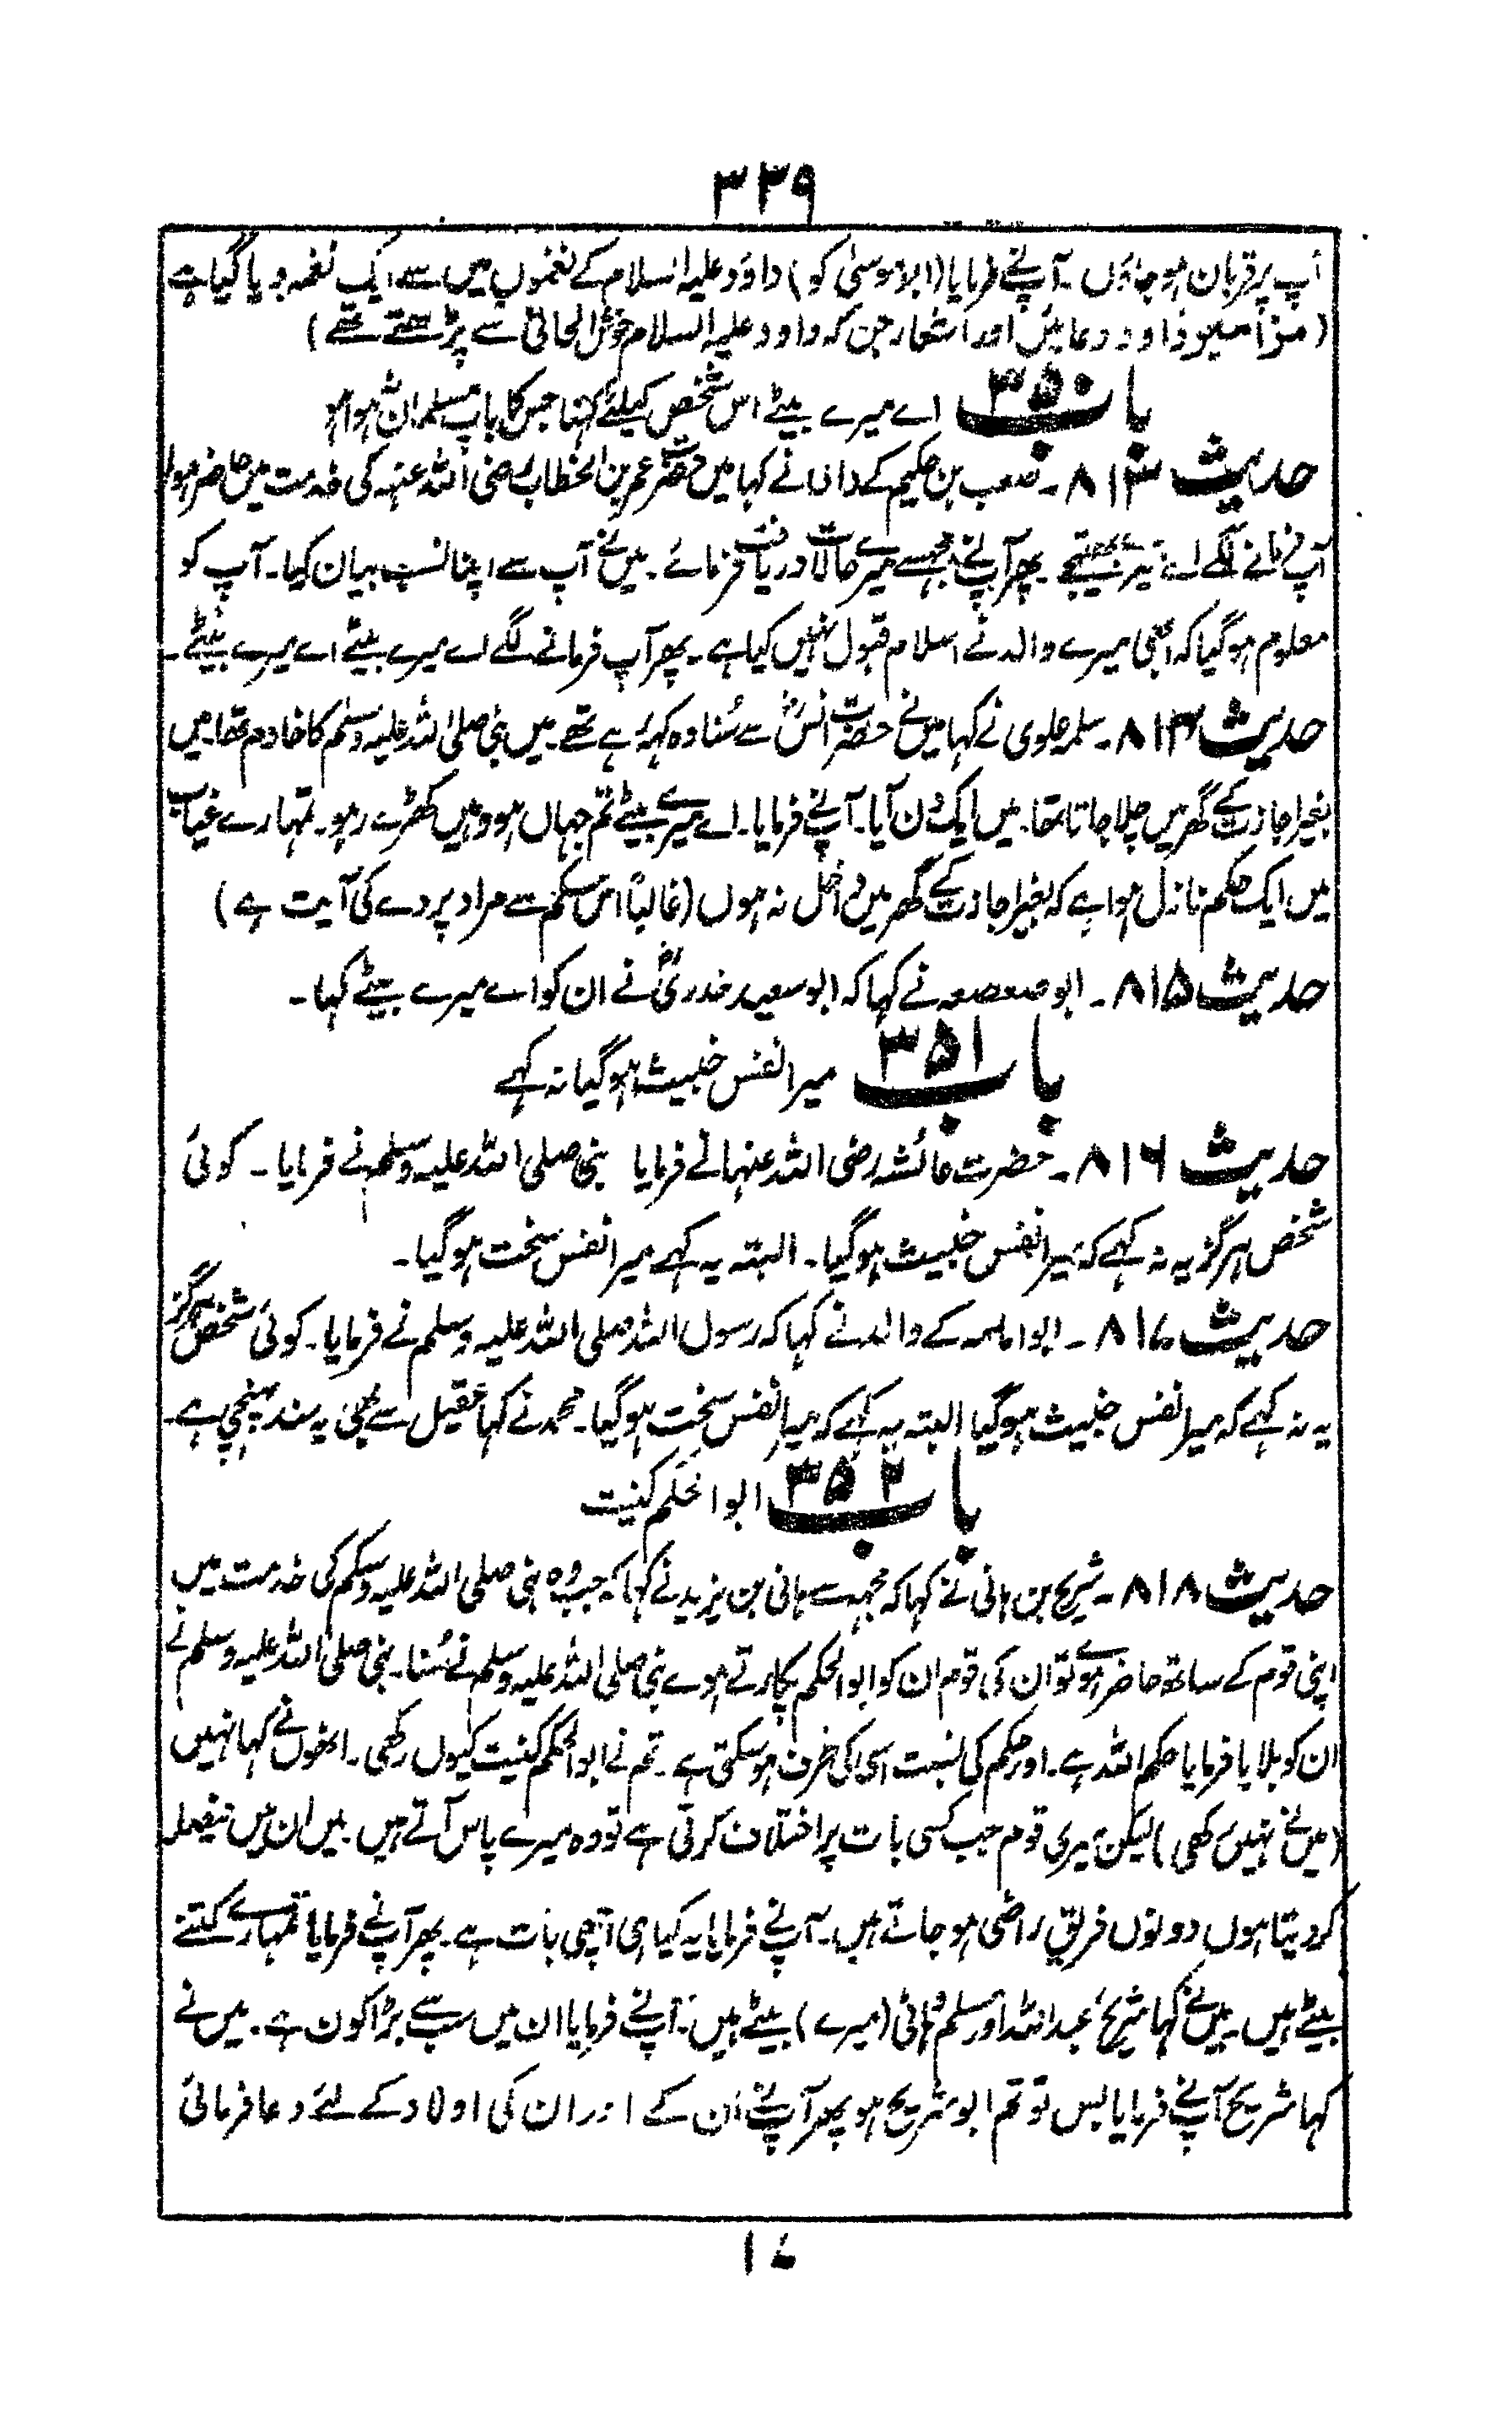 ۳۳۹
آپ پر قربان ہو جاؤں ۔ آپ نے فرمایا (ابو موسیٰ کو) داؤد علیہ السلام کے نغموں میں سے ایک نغمہ دیا گیا ہے
(مزامیر داود دعائیں اور اشعار جن کہ داود علیہ السلام خوش الحانی سے پڑھتے تھے)
باب ۳۵۰ اے میرے بیٹے اس شخص کیلئے کہنا جس کا باپ مسلمان نہ ہوا ہو
حدیث ۸۱۳ ۔ صعب بن حکیم کے دادا نے کہا میں حضرت عمر بن الخطاب رضی اللہ عنہ کی خدمت میں حاضر ہوا
آپ فرمانے لگے اے میرے بھتیجے ۔ پھر آپ نے مجھ سے میرے حالات دریافت فرمائے ۔ میں نے آپ سے اپنا نسب بیان کیا ۔ آپ کو
معلوم ہو گیا کہ ابھی میرے والد نے اسلام قبول نہیں کیا ہے ۔ پھر آپ فرمانے لگے اے میرے بیٹے اے میرے بیٹے ۔
حدیث ۸۱۴ ۔ سلمہ علوی نے کہا میں نے حضرت انسؓ سے سُنا وہ کہہ رہے تھے ۔ میں نبی صلی اللہ علیہ وسلم کا خادم تھا میں
بغیر اجازت کے گھر میں چلا جاتا تھا ۔ میں ایک دن آیا ۔ آپ نے فرمایا ۔ اے میرے بیٹے تم جہاں ہو وہیں کھڑے رہو ۔ تمہارے غیاب
میں ایک حکم نازل ہوا ہے کہ بغیر اجازت کے گھر میں داخل نہ ہوں (غالباً اس حکم سے مراد پردے کی آیت ہے)
حدیث ۸۱۵ ۔ ابو صعصعہ نے کہا کہ ابو سعید خدریؓ نے ان کو اے میرے بیٹے کہا ۔
باب ۳۵۱ میرا نفس خبیث ہو گیا نہ کہے
حدیث ۸۱۶ ۔ حضرت عائشہ رضی اللہ عنہا نے فرمایا نبی صلی اللہ علیہ وسلم نے فرمایا ۔ کوئی
شخص ہرگز یہ نہ کہے کہ میرا نفس خبیث ہو گیا ۔ البتہ یہ کہے میرا نفس سخت ہو گیا ۔
حدیث ۸۱۷ ۔ ابو امامہ کے والد نے کہا کہ رسول اللہ صلی اللہ علیہ وسلم نے فرمایا ۔ کوئی شخص ہرگز
یہ نہ کہے کہ میرا نفس خبیث ہو گیا البتہ یہ کہے کہ میرا نفس سخت ہو گیا ۔ محمد نے کہا عقیل سے بھی یہ سند پہنچی ہے ۔
باب ۳۵۲ ابو الحکم کنیت
حدیث ۸۱۸ ۔ شریح بن ہانی نے کہا کہ مجھ سے ہانی بن یزید نے کہا کہ جب وہ نبی صلی اللہ علیہ وسلم کی خدمت میں
اپنی قوم کے ساتھ حاضر ہوئے تو ان کی قوم ان کو ابو الحکم پکارتے ہوے نبی صلی اللہ علیہ وسلم نے سُنا ۔ نبی صلی اللہ علیہ وسلم نے
ان کو بلایا فرمایا حکم اللہ ہے ۔ اور حکم کی نسبت اسی کی طرف ہو سکتی ہے ۔ تم نے ابو الحکم کنیت کیوں رکھی ۔ انھوں نے کہا نہیں
(میں نے نہیں رکھی) لیکن میری قوم جب کسی بات پر اختلاف کرتی ہے تو وہ میرے پاس آتے ہیں ۔ میں ان میں فیصلہ
کر دیتا ہوں دونوں فریق راضی ہو جاتے ہیں ۔ آپ نے فرمایا یہ کیا ہی اچھی بات ہے ۔ پھر آپ نے فرمایا تمہارے کتنے
بیٹے ہیں ۔ میں نے کہا شریح عبد اللہ اور مسلم ہانی (میرے) بیٹے ہیں ۔ آپ نے فرمایا ان میں سب سے بڑا کون ہے ۔ میں نے
کہا شریح آپ نے فرمایا بس تو تم ابو شریح ہو پھر آپ نے ان کے اور ان کی اولاد کے لئے دعا فرمائی
۱۷